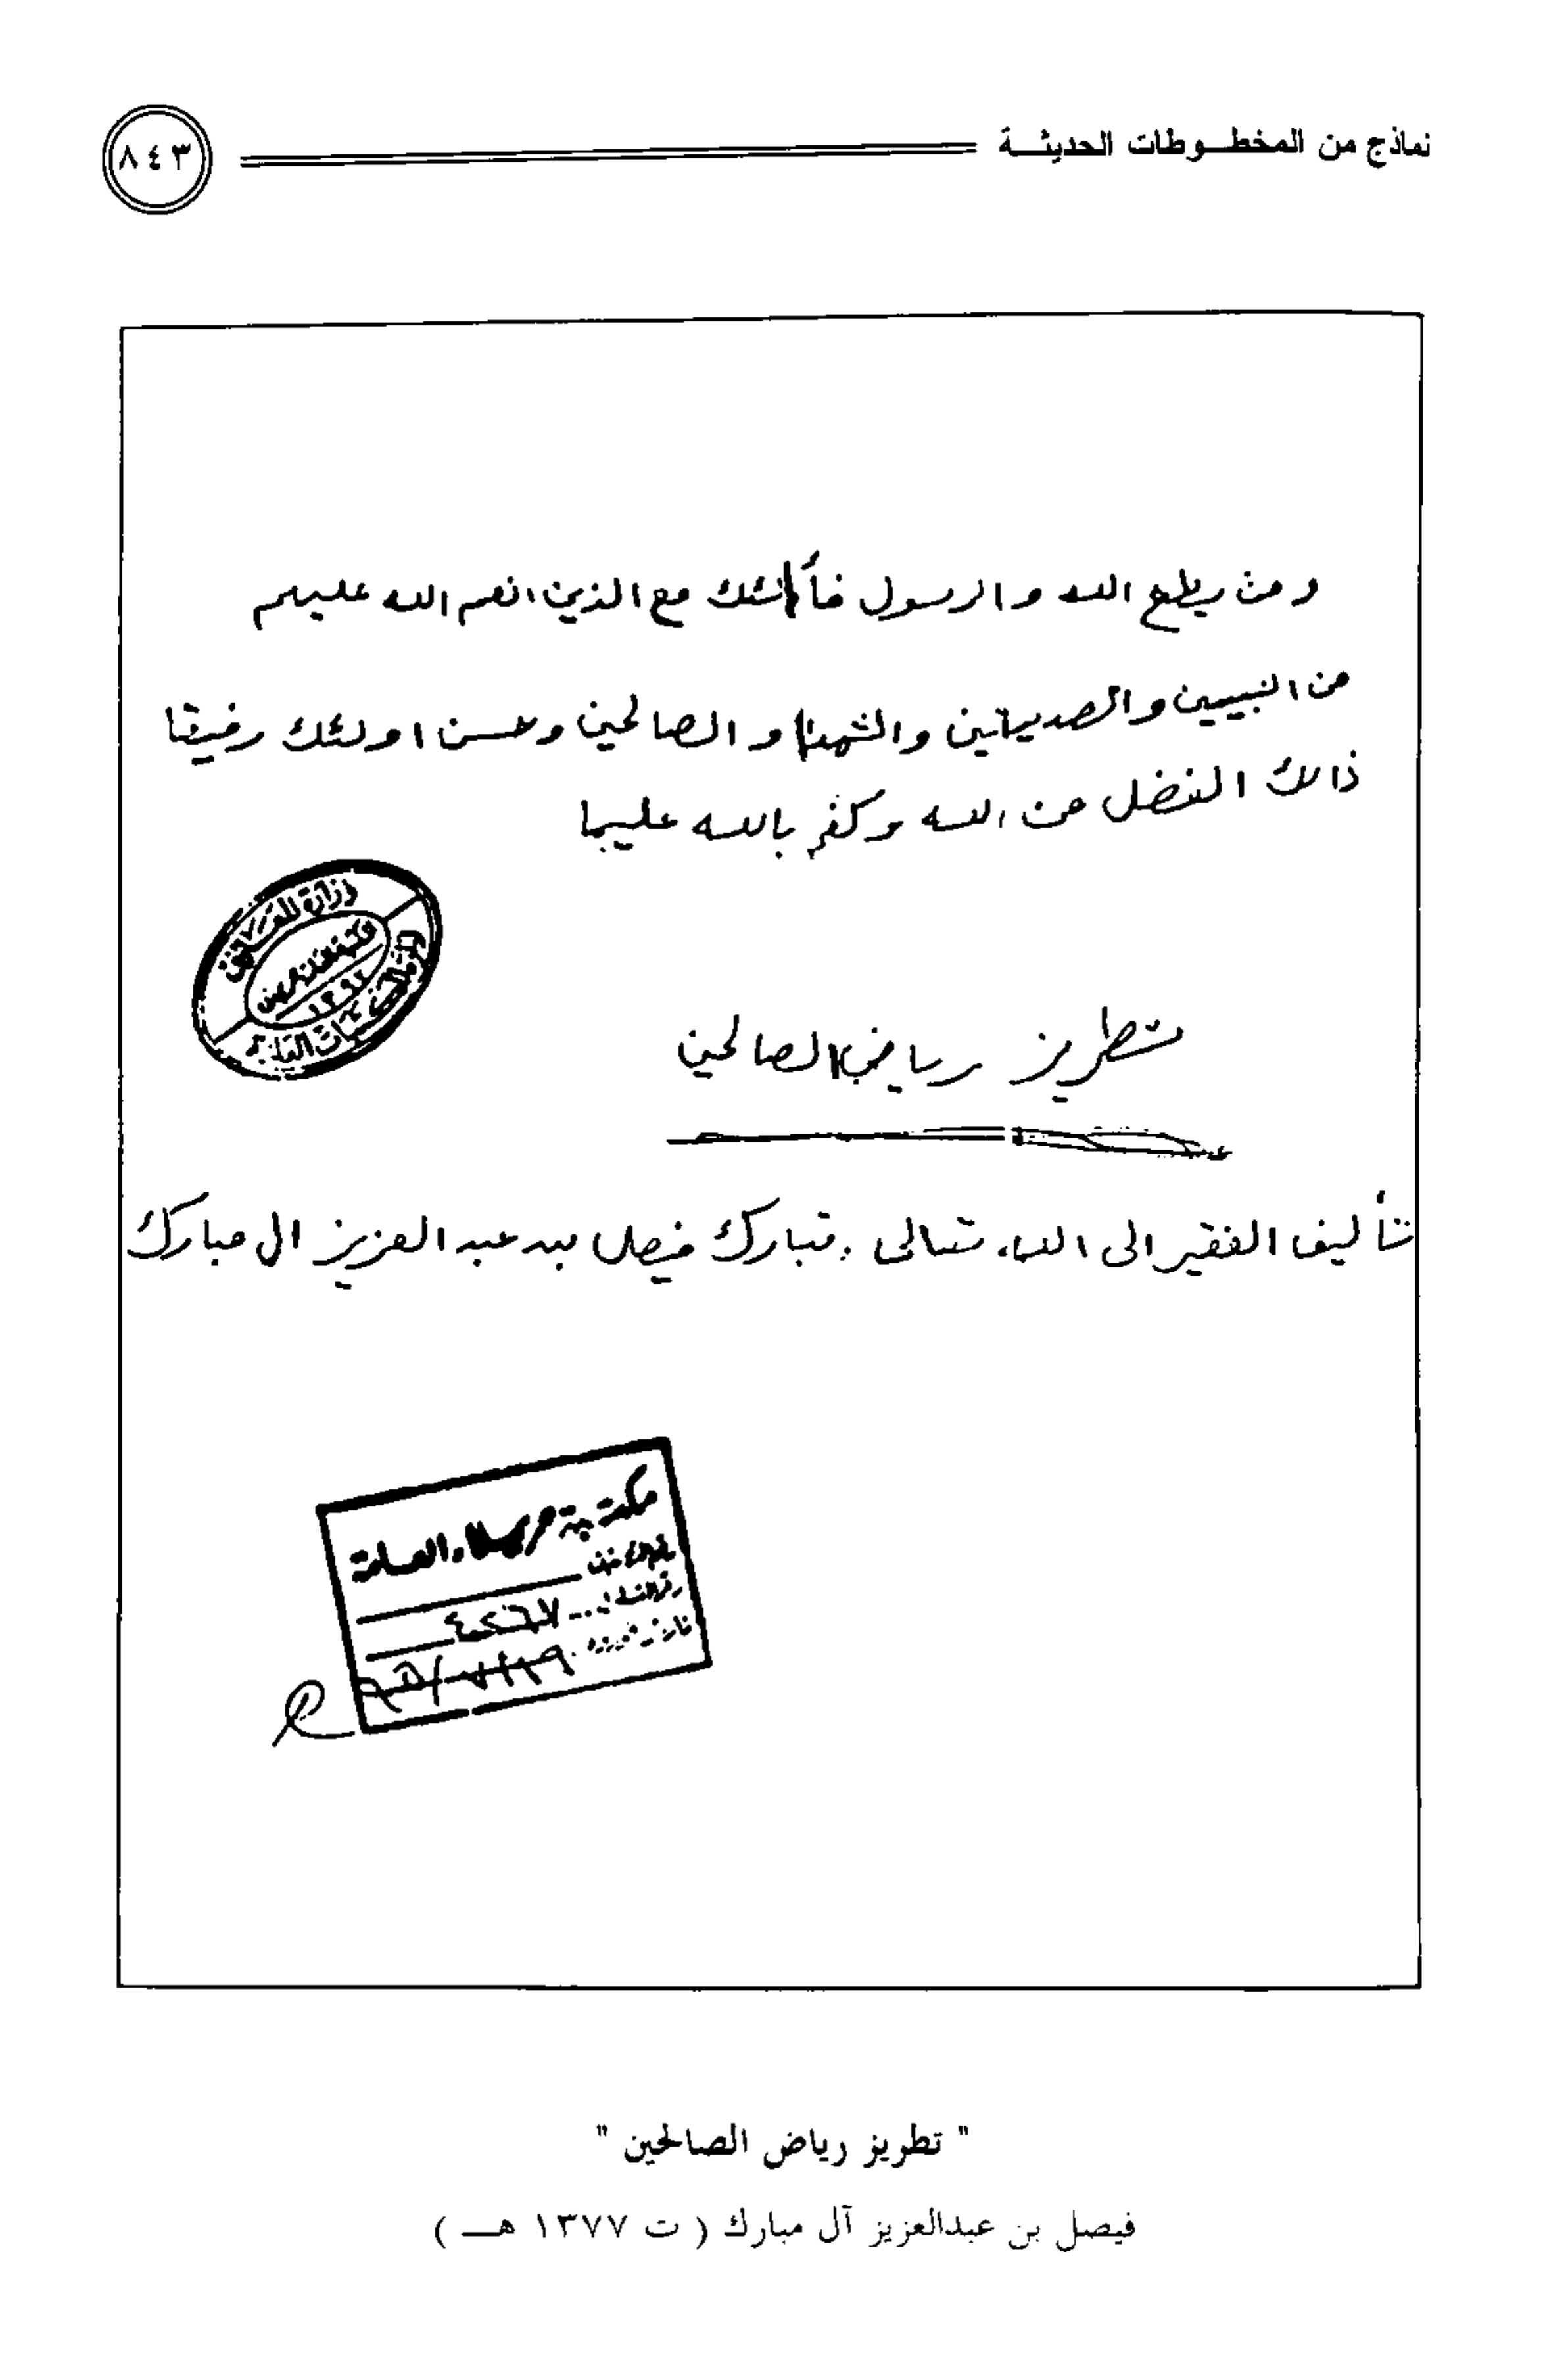 نماذج من المخطـوطات الحديثـة
٨٤٣
ومن يطع الله والرسول فأولئك مع الذين انعم الله عليهم
من النبيين والصديقين والشهدا والصالحين وحسن اولئك رفيقا
ذالك الفضل من الله وكفى بالله عليما
وزارة المعارف
تطريز رياض الصالحين
تأليف الفقير الى الله تعالى وتبارك فيصل بن عبد العزيز ال مبارك
مكتبة حريملاء العامة
" تطريز رياض الصالحين "
فيصل بن عبدالعزيز آل مبارك ( ت ١٣٧٧ هـ )